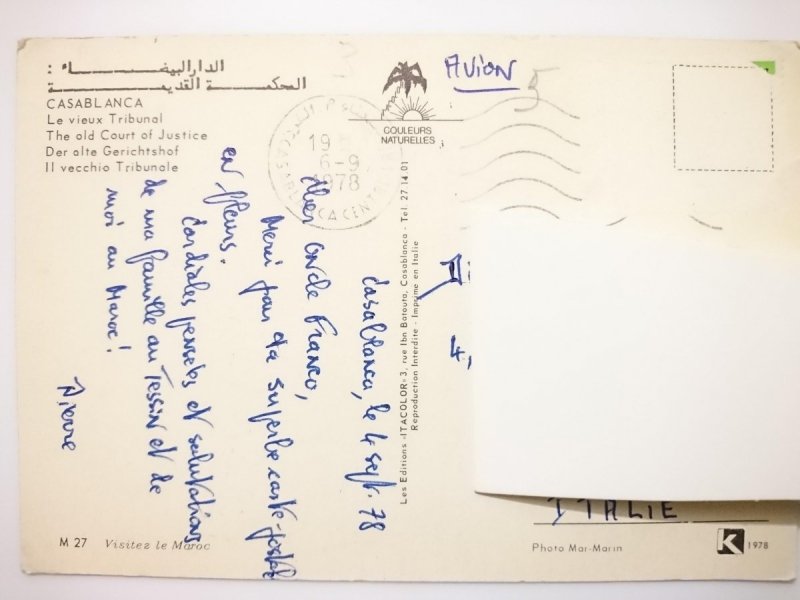 الدار البيضاء :
المحكمة القديمة
CASABLANCA
Le vieux Tribunal
The old Court of Justice
Der alte Gerichtshof
Il vecchio Tribunale
COULEURS
NATURELLES
AVION
5
19
6-9
1978
CASABLANCA CENTRE
Casablanca, le 4 sept. 78
Cher oncle Franco,
Merci pour ta superbe carte-postale
en fleurs.
Cordiales pensées et salutations
de ma famille au Tessin et de
moi au Maroc!
Pierre
Les Editions «ITACOLOR» 3, rue Ibn Batouta, Casablanca - Tel. 27 14 01
Reproduction Interdite - Imprimé en Italie
4
ITALIE
M 27 Visitez le Maroc
Photo Mar-Marin
K 1978